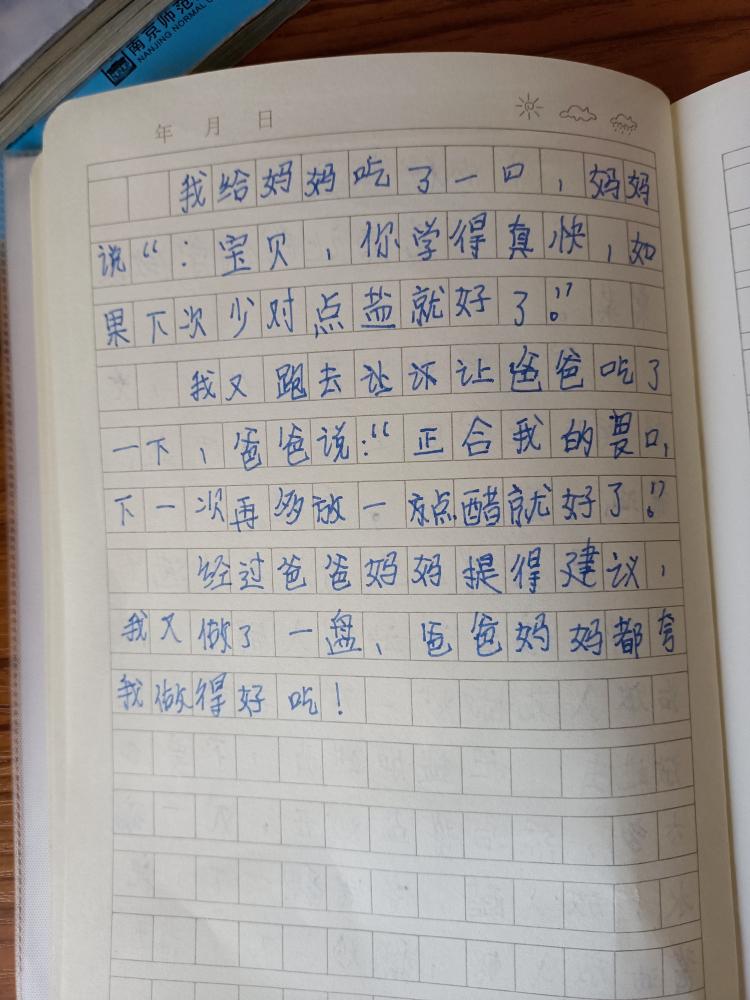 南京师范
NANJING NORMAL
年 月 日
我给妈妈吃了一口，妈妈
说“：宝贝，你学得真快，如
果下次少对点盐就好了。”
我又跑去让让爸爸吃了
一下，爸爸说：“正合我的胃口，
下一次再多放一点醋就好了。”
经过爸爸妈妈提得建议，
我又做了一盘，爸爸妈妈都夸
我做得好吃！